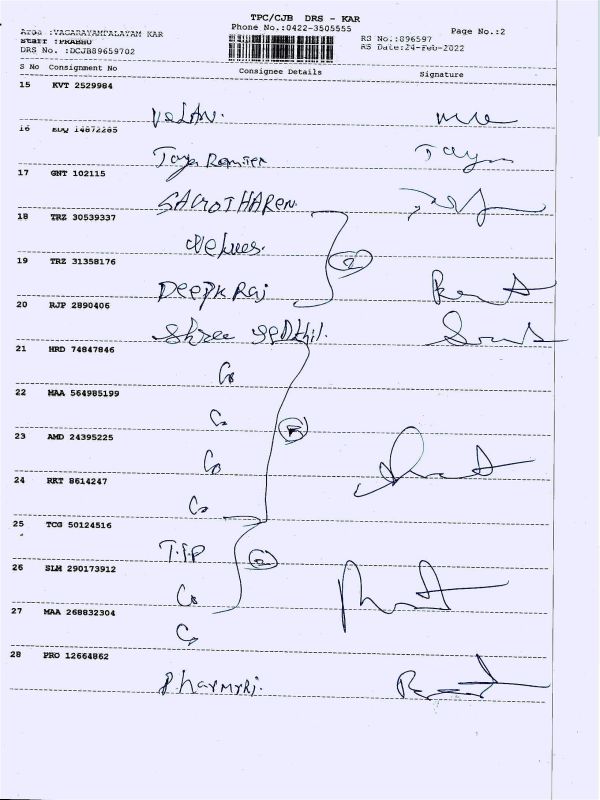 TPC/CJB DRS - KAR
Phone No.:0422-3505555
KAR
Staff :PRABHU
RS No.:896597 Page No.:2
DRS No. :DCJB89659702
RS Date:24-Feb-2022
S No Consignment No Consignee Details Signature
15 KVT 2529984
VELAN.
16 14872285
Jaya
17 GNT 102115
18 TRZ 30539337
2
19 TRZ 31358176
Deepk Raj
20 RJP 2890406
Shree
21 HRD 74847846
Co
22 MAA 564985199
Co
23 AMD 24395225
Co
24 RKT 8614247
Co
25 TCG 50124516
T.I.P
26 SLM 290173912
Co
27 MAA 268832304
Co
28 PRO 12664862
Dharmraj.